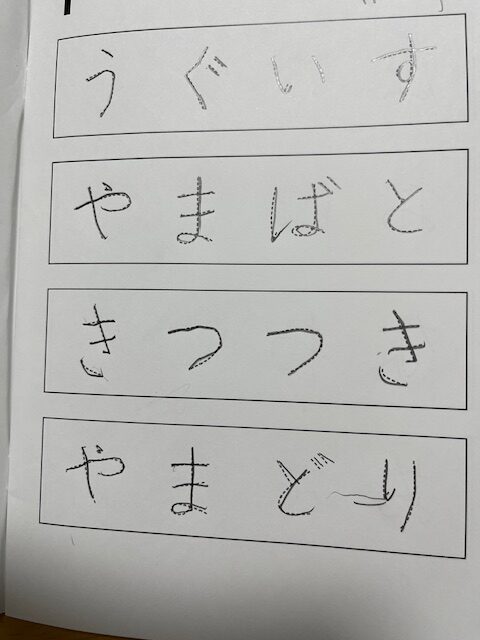 うぐいす
やまばと
きつつき
やまどり